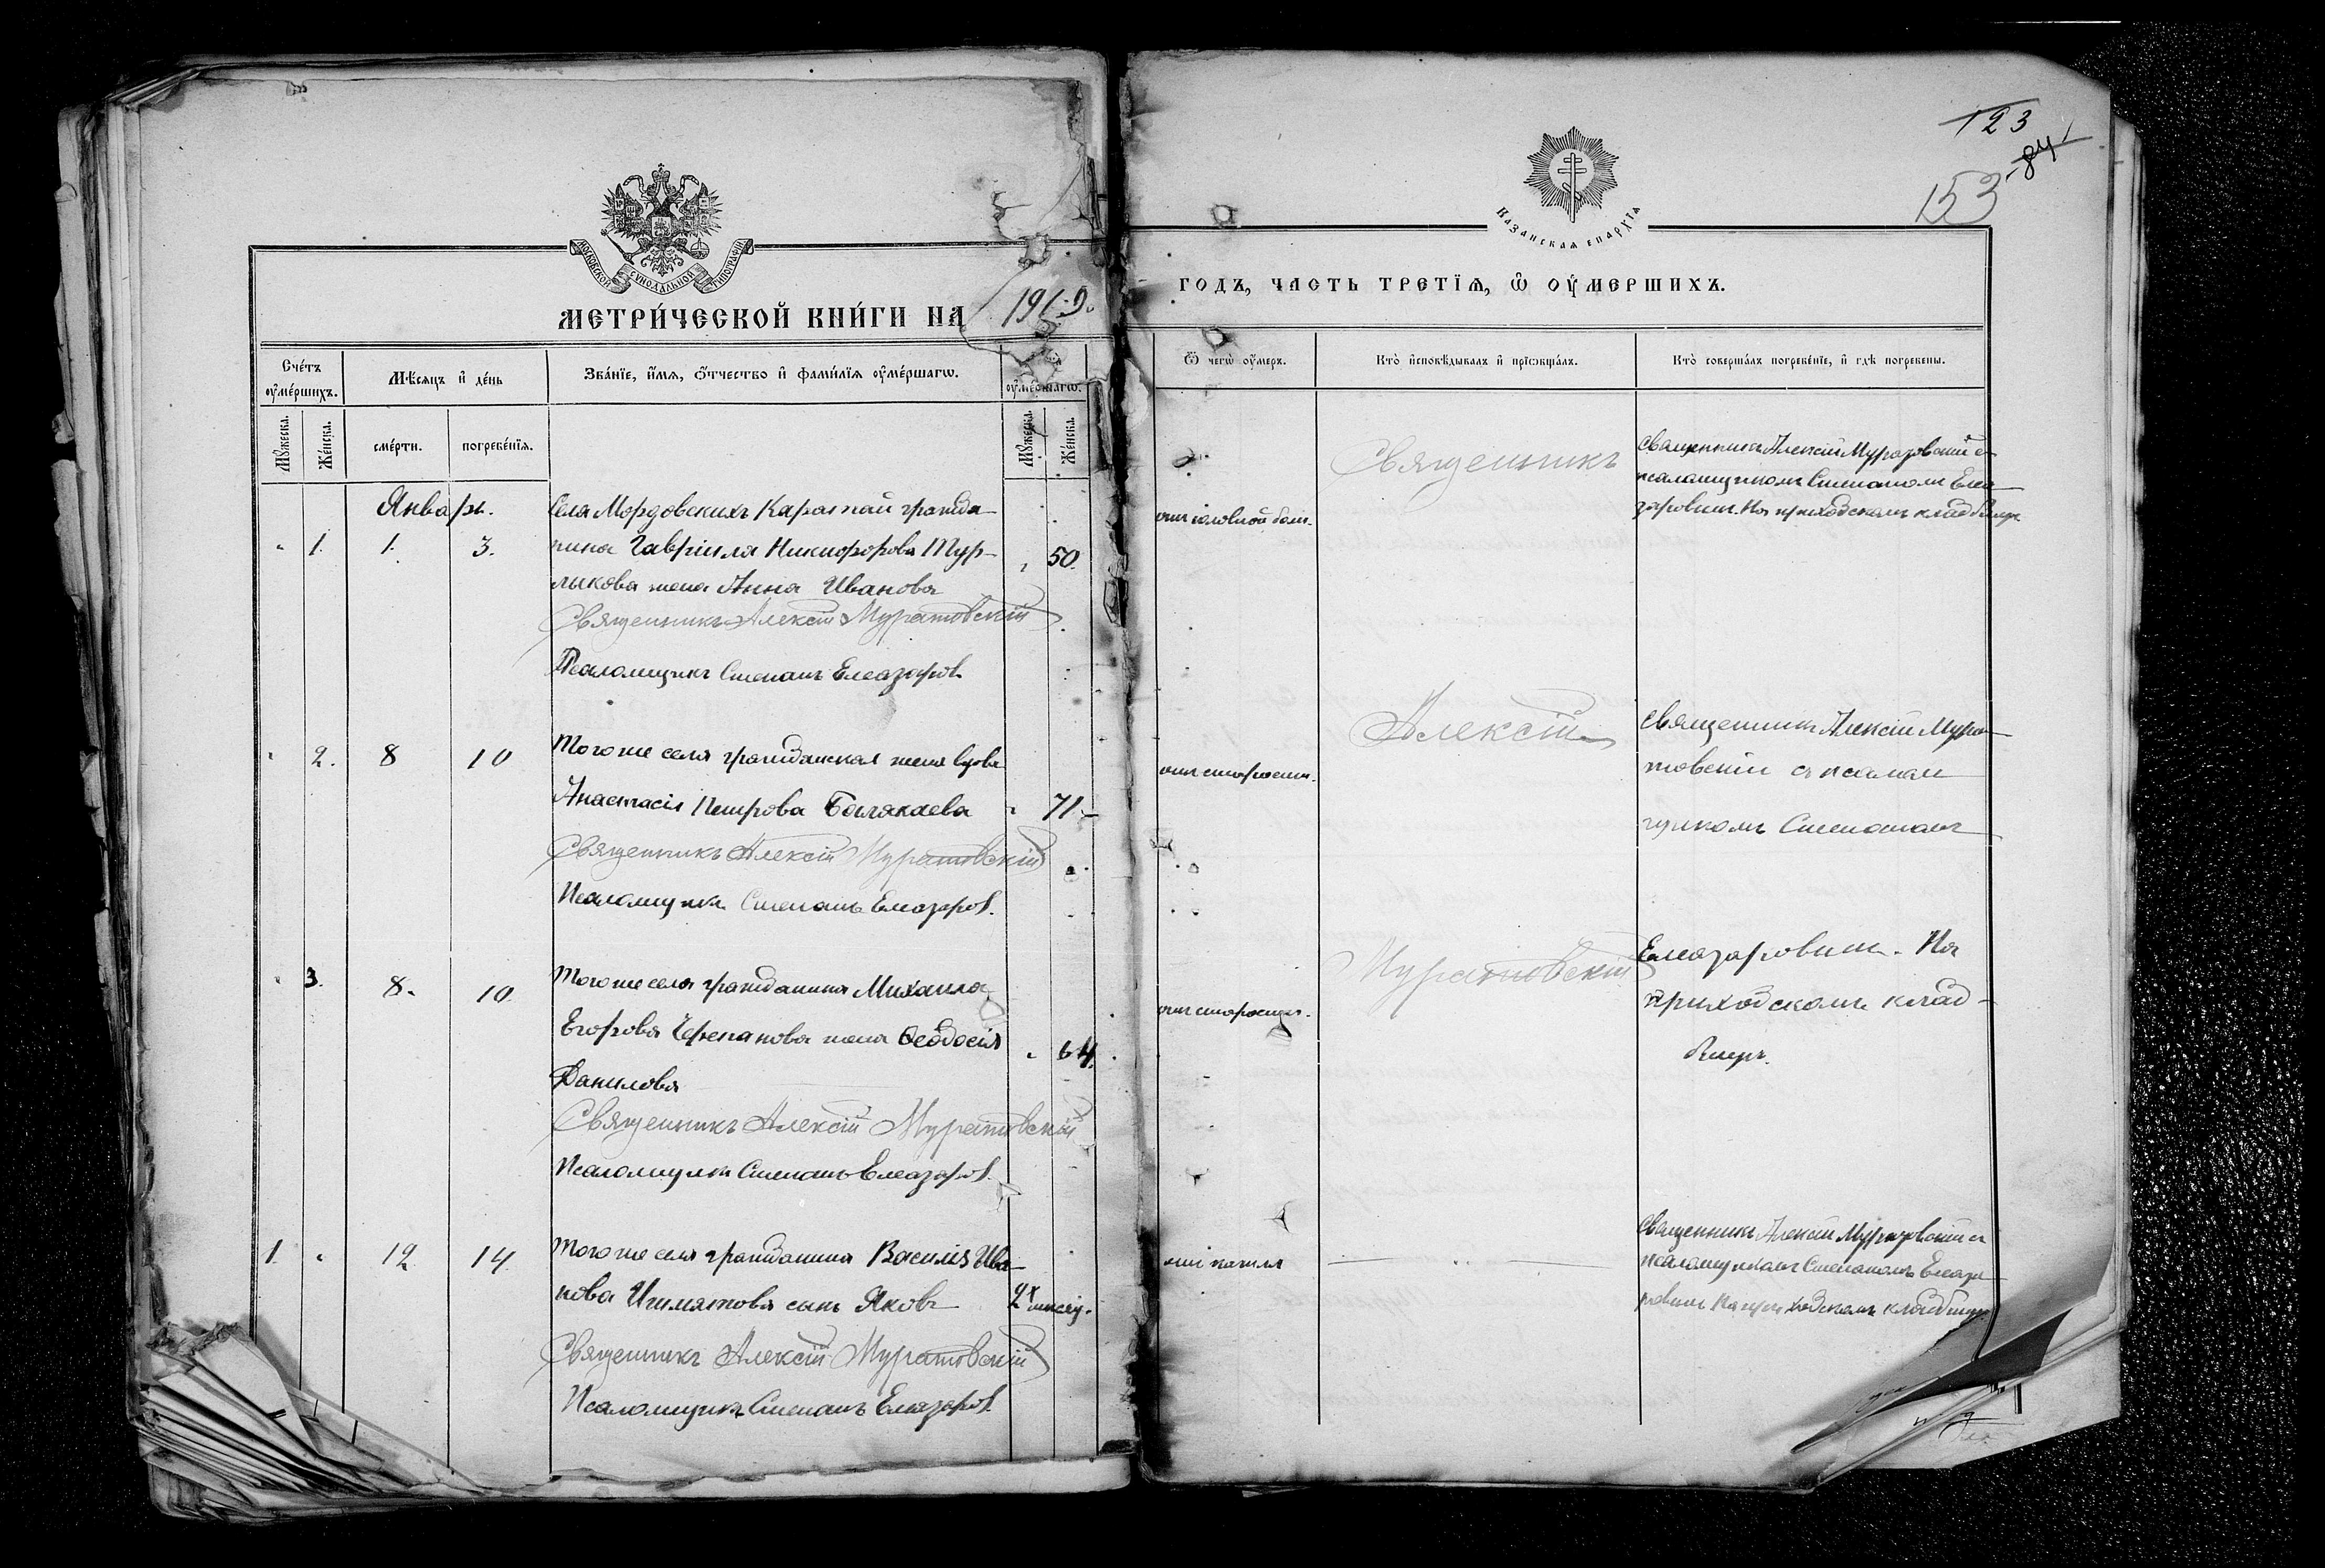 123
84
153
МОСКОВСКОЙ СѴНОДАЛЬНОЙ ТИПОГРАФІИ
КАЗАНСКАЯ ЕПАРХІЯ
МЕТРИ́ЧЕСКОЙ КНИ́ГИ НА 1919.
ГОДЪ, ЧАСТЬ ТРЕТІѦ, Ѽ ОУ҆МЕРШИХЪ.
Сче́тъ оу҆ме́ршихъ.
Мѣсяцъ и҆ де́нь
Зва́нїе, и҆́мѧ, ѻ҆́тчество и҆ фами́лїѧ оу҆ме́ршагѡ.
оу҆ме́ршагѡ.
Ѿ чегѡ̀ оу҆́меръ.
Кто̀ и҆сповѣ́дывалъ и҆ прїѡбща́лъ.
Кто̀ соверша́лъ погребе́нїе, и҆ гдѣ̀ погребены.
Мꙋ́жеска.
Же́нска.
сме́рти.
погребе́нїѧ.
Мꙋ́жеска.
Же́нска.
Январь.
Села Мордовскихъ Каратай гражда-
" 1. 1. 3. нина Гавріила Никифорова Тур-
" 50.
лыкова жена Анна Иванова
Священникъ Алексій Муратовскій
Псаломщикъ Степанъ Елеазаров
отъ головной боли.
Священникъ
Священникъ Алексій Муратовскій съ
псаломщикомъ Степаномъ Елеа-
заровымъ. На приходскомъ кладбищѣ
" 2. 8 10 Того же села гражданская жена вдова
Анастасія Петрова Балякаева " 71.
Священникъ Алексій Муратовскій
Псаломщикъ Степанъ Елеазаров.
отъ старости.
Алексій
Священникъ Алексій Мура-
товскій съ псалом
щикомъ Степаномъ
" 3. 8. 10 Того же села гражданина Михаила
Егорова Черепанова жена Ѳеодосія
" 64.
Данилова
Священникъ Алексій Муратовскій
Псаломщикъ Степанъ Елеазаров.
отъ старости.
Муратовскій
Елеазаровымъ. На
приходскомъ клад-
бищѣ.
1. " 12 14 Того же села гражданина Василія Ива-
нова сынъ Яковъ 2х мѣсяц.
Священникъ Алексій Муратовскій
Псаломщикъ Степанъ Елеазаров.
отъ кашля
Священникъ Алексій Муратовскій съ
псаломщикомъ Степаномъ Елеаза-
ровымъ На приходскомъ кладбищѣ